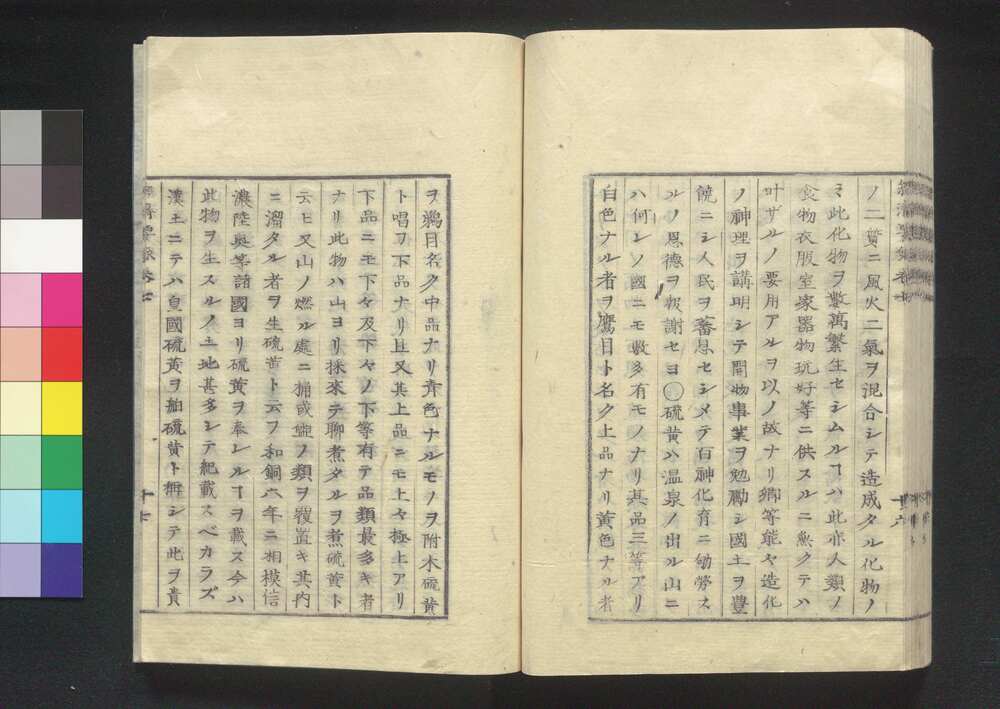 ノ二質ニ風火二氣ヲ混合シテ造成タル化物ノ
ミ此化物ヲ數萬繁生セシムルヿハ此亦人類ノ
食物衣服室家器物玩好等ニ供スルニ無クテハ
叶ザルノ要用アルヲ以ノ故ナリ卿等能ヤ造化
ノ神理ヲ講明シテ開物事業ヲ勉勵シ國土ヲ豐
饒ニシ人民ヲ蕃息セシメテ百神化育ニ劬勞ス
ルノ恩德ヲ報謝セヨ〇硫黄ハ温泉ノ出ル山ニ
ハ何レノ國ニモ數多有モノナリ其品三等アリ
白色ナル者ヲ鷹目ト名ク上品ナリ黄色ナル者
ヲ鵜目名ク中品ナリ青色ナルモノヲ附木硫黄
ト唱フ下品ナリ且又其上品ニモ上々極上アリ
下品ニモ下々及下々ノ下等有テ品類最多キ者
ナリ此物ハ山ヨリ採來テ聊煮タルヲ煮硫黄ト
云ヒ又山ノ燃ル處ニ桶或壺ノ類ヲ覆置キ其内
ニ溜タル者ヲ生硫黄ト云フ和銅六年ニ相模信
濃陸奥等諸國ヨリ硫黄ヲ奉レルヿヲ載ス今ハ
此物ヲ生スルノ土地甚多シテ紀載スベカラズ
漢土ニテハ皇國硫黄ヲ舶硫黄ト稱シテ此ヲ貴